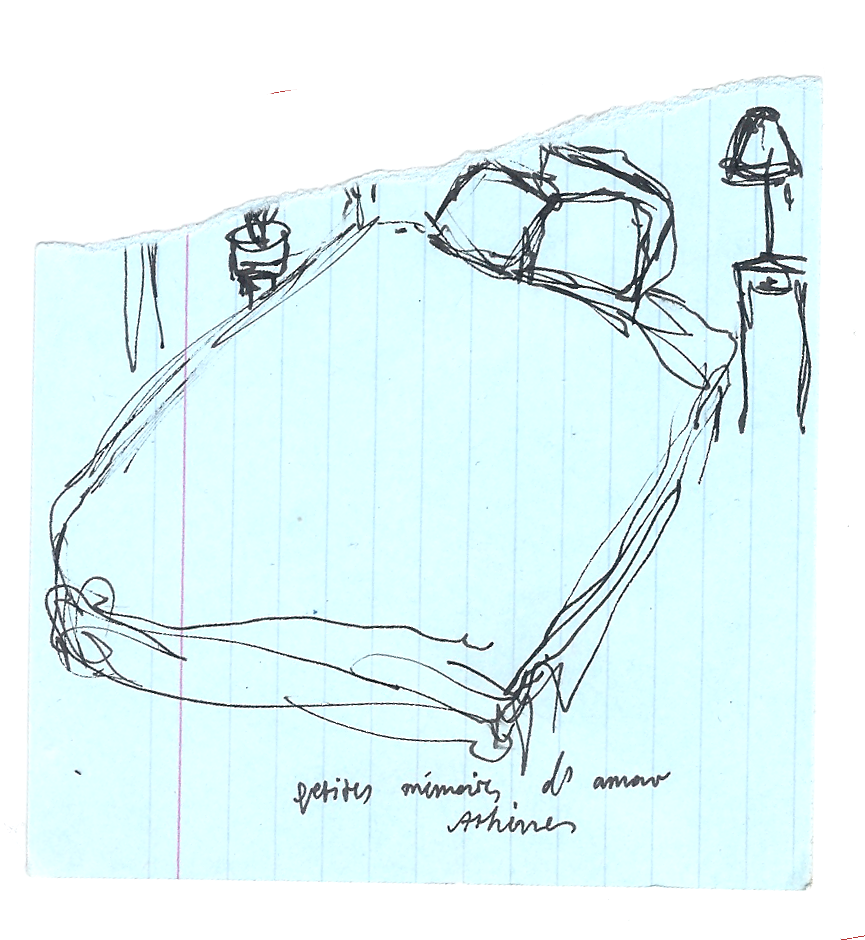 petites mémoires d'amour
Athènes